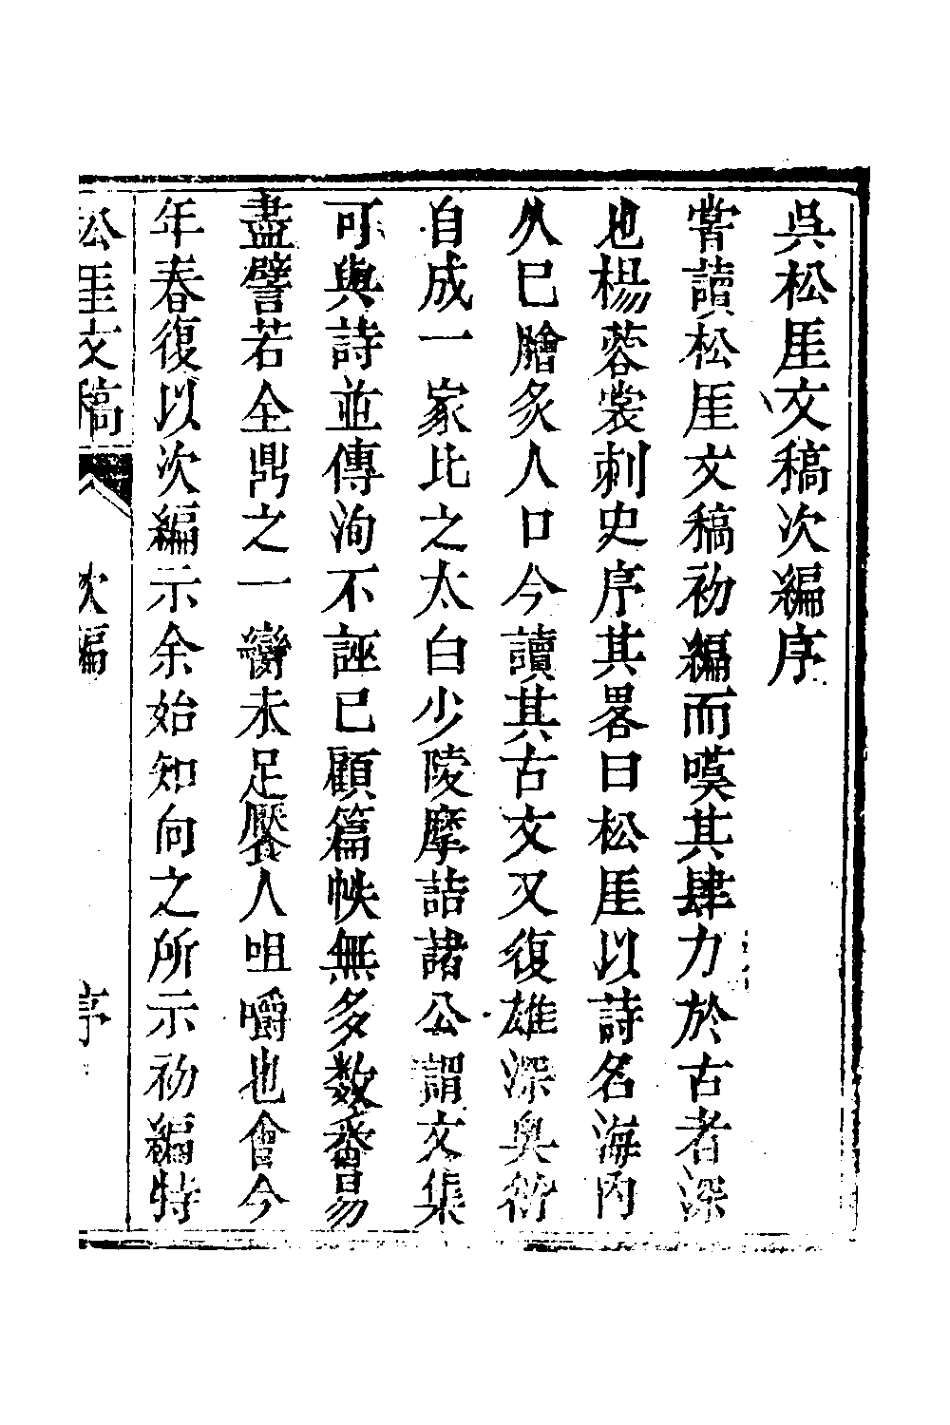 吳松厓文稿次編序
嘗讀松厓文稿初編而嘆其肆力於古者深
也楊蓉裳刺史序其畧曰松厓以詩名海內
久已膾炙人口今讀其古文又復雄深奥衍
自成一家比之太白少陵摩詰諸公謂文集
可與詩並傳洵不誣已顧篇帙無多數番易
盡譬若全鼎之一臠未足饜人咀嚼也會今
年春復以次編示余始知向之所示初編特
松厓文稿 次編 序